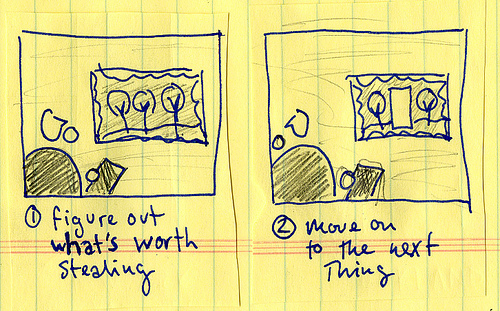 ① figure out
what's worth
stealing
② move on
to the next
Thing